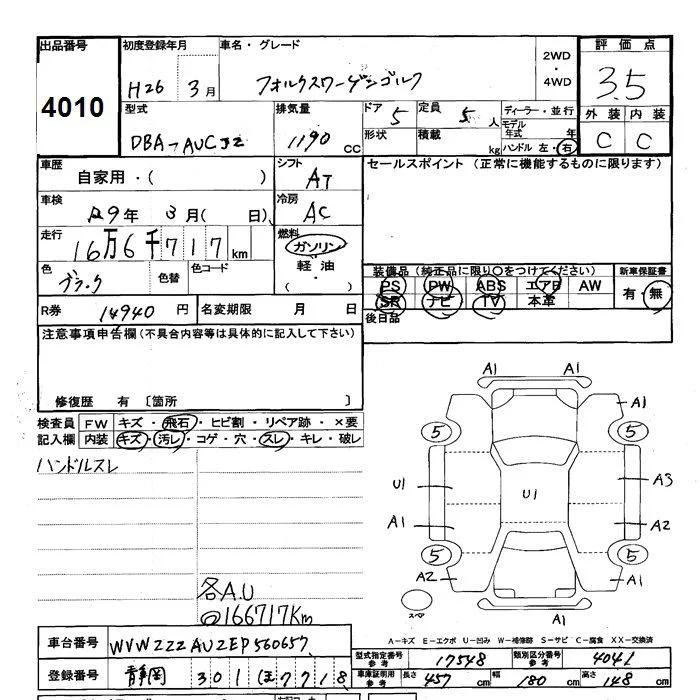 出品番号 初度登録年月 車名・グレード 2WD・4WD 評価点
4010 H26 3月 フォルクスワーゲンゴルフ 3.5
型式 排気量 ドア 5 定員 5人 ディーラー・並行 外装 内装
DBA-AUCJZ 1190 CC 形状 積載 kg モデル年式 年 C C
ハンドル 左・右
車歴 自家用・( ) シフト AT セールスポイント (正常に機能するものに限ります)
車検 R9年 3月( 日) 冷房 AC
走行 16万6千717km 燃料 ガソリン
軽油
( )
色 ブラック 色替 色コード 装備品 (純正品に限り○をつけてください) 新車保証書
PS PW ABS エアB AW 有・無
SR ナビ TV 本革
R券 14940円 名変期限 月 日 後日品
注意事項申告欄(不具合内容等は具体的に記入して下さい)
修復歴 有 〔箇所 〕
検査員 FW キズ・飛石・ヒビ割・リペア跡・×要
記入欄 内装 キズ・汚レ・コゲ・穴・スレ・キレ・破レ
ハンドルスレ
各A.U
@166717Km
A1
A1 A1
5 5
U1 U1 A3
A1 A2
5 5
A2 A1
スペア A1
A-キズ E-エクボ U-凹み W-補修跡 S-サビ C-腐食 XX-交換済
車台番号 WVWZZZAUZEP560657
型式指定番号 参考 17548 類別区分番号 参考 4041
登録番号 静岡 301 ほ 7718
車庫証明用 参考 長さ 457cm 幅 180cm 高さ 148cm